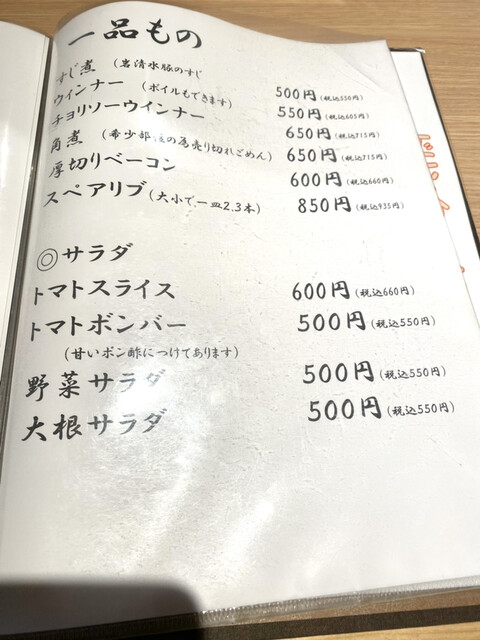 一品もの
すじ煮 (岩清水豚のすじ 500円(税込550円)
ウィンナー (ボイルもできます) 550円(税込605円)
チョリソーウインナー 650円(税込715円)
角煮 (希少部位の為売り切れごめん) 650円(税込715円)
厚切りベーコン 600円(税込660円)
スペアリブ(大小で一皿2.3本) 850円(税込935円)
◎サラダ
トマトスライス 600円(税込660円)
トマトボンバー 500円(税込550円)
(甘いポン酢につけてあります)
野菜サラダ 500円(税込550円)
大根サラダ 500円(税込550円)